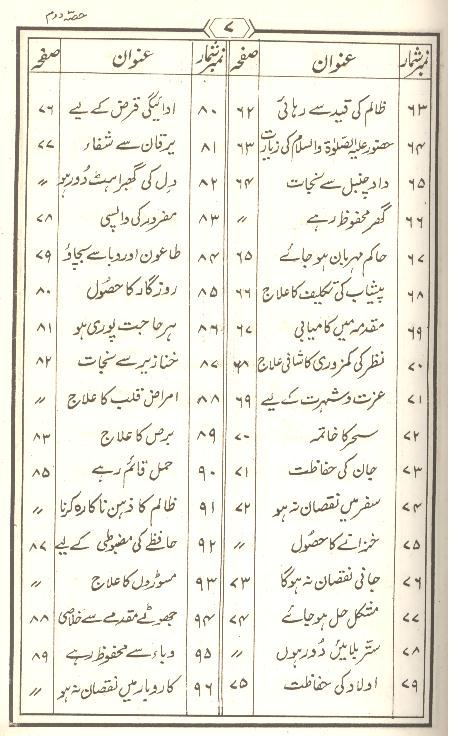 حصّہ دوم
۷
نمبر شمار عنوان صفحہ نمبر شمار عنوان صفحہ
۶۳ ظالم کی قید سے رہائی ۶۲ ۸۰ ادائیگی قرض کے لیے ۷۶
۶۴ حضور علیہ الصلوٰۃ والسلام کی زیارت ۶۳ ۸۱ یرقان سے شفاء ۷۷
۶۵ داد چنبل سے نجات ۶۴ ۸۲ دل کی گھبراہٹ دُور ہو ״
۶۶ گھر محفوظ رہے ״ ۸۳ مفرور کی واپسی ۷۸
۶۷ حاکم مہربان ہو جائے ۶۵ ۸۴ طاعون اور وبا سے بچاؤ ۷۹
۶۸ پیشاب کی تکلیف کا علاج ۶۶ ۸۵ روزگار کا حصُول ۸۰
۶۹ مقدمہ میں کامیابی ۶۷ ۸۶ ہر حاجت پوری ہو ۸۱
۷۰ نظر کی کمزوری کا شافی علاج ۶۸ ۸۷ خنازیر سے نجات ۸۲
۷۱ عزت و شہرت کے لیے ۶۹ ۸۸ امراض قلب کا علاج ״
۷۲ سحر کا خاتمہ ۷۰ ۸۹ برص کا علاج ۸۳
۷۳ جان کی حفاظت ۷۱ ۹۰ حمل قائم رہے ۸۵
۷۴ سفر میں نقصان نہ ہو ۷۲ ۹۱ ظالم کا ذہن ناکارہ کرنا ״
۷۵ خزانے کا حصُول ״ ۹۲ حافظے کی مضبوطی کے لیے ۸۷
۷۶ جانی نقصان نہ ہوگا ۷۳ ۹۳ مسوڑوں کا علاج ״
۷۷ مشکل حل ہو جائے ۷۴ ۹۴ جھوٹے مقدمے سے خلاصی ۸۸
۷۸ ستر بلائیں دُور ہوں ״ ۹۵ وباء سے محفوظ رہے ۸۹
۷۹ اولاد کی حفاظت ۷۵ ۹۶ کاروبار میں نقصان نہ ہو ״